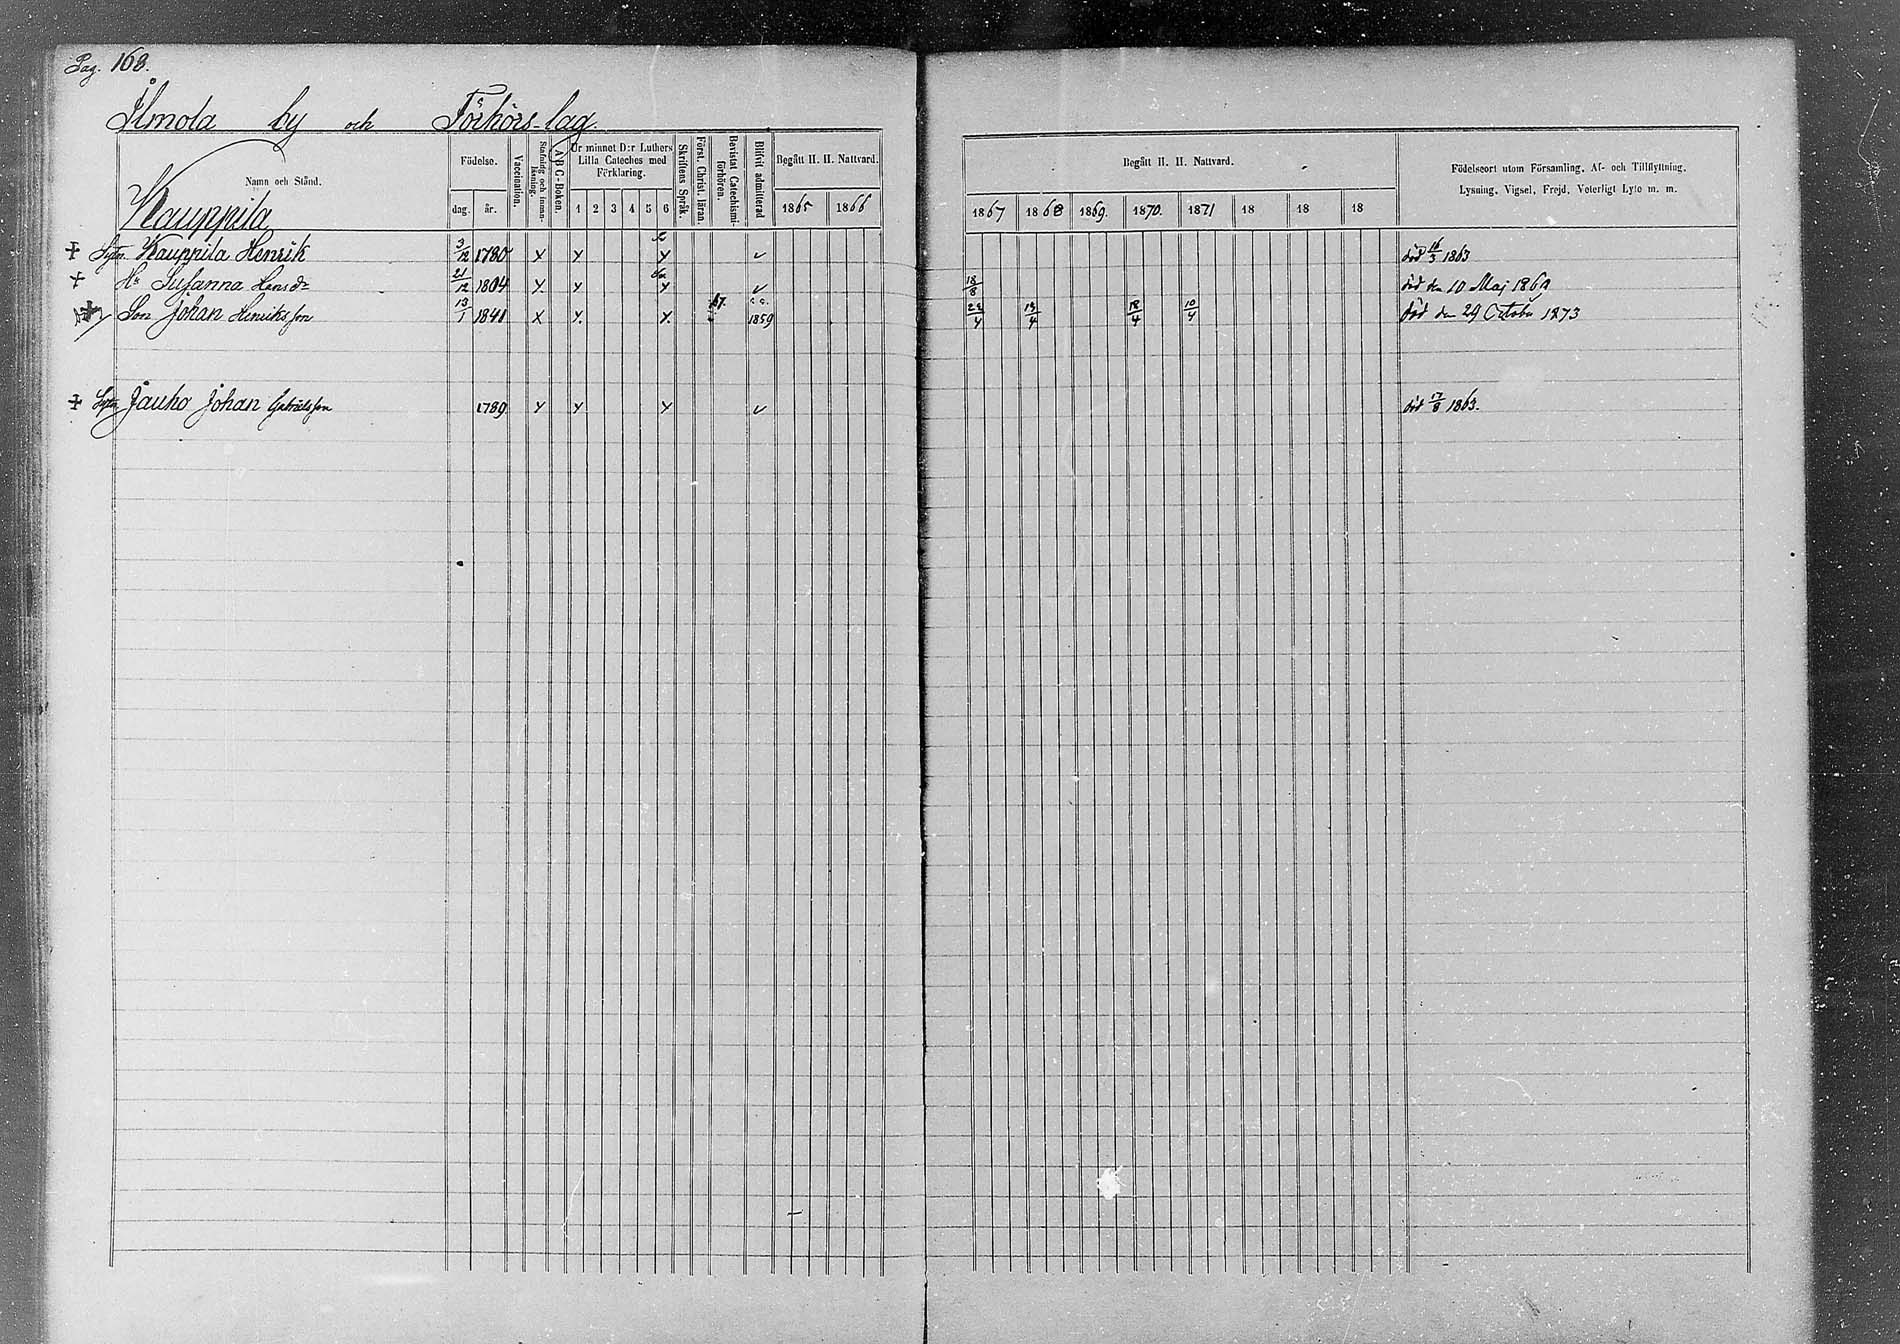 Pag. 168.
Ilmola by och Förhörs-lag.
Namn och Stånd.
Födelse.
dag. år.
Vaccination.
Stafning och innan-läsning.
A B C-Boken.
Ur minnet D:r Luthers Lilla Cateches med Förklaring.
1 2 3 4 5 6
Skriftens Språk.
Först. Christ. läran.
Bevistat Catechismi-förhören.
Blifvit admitterad
Begått H. H. Nattvard.
1865 1866
Begått H. H. Nattvard.
1867 1868 1869. 1870. 1871 18 18 18
Födelseort utom Församling, Af- och Tillflyttning,
Lysning, Vigsel, Frejd, Veterligt Lyte m. m.
Kauppila
Kauppila Henrik 3/12 1780 död 16/3 1863
Hu Susanna Hansdr 21/12 1804 18/8 död den 10 Maj 1869
Son Johan Henriksson 13/1 1841 1859 22/4 13/4 18/4 10/4 död den 29 October 1873
Jauho Johan Gabrielsson 1789 död 17/8 1863.